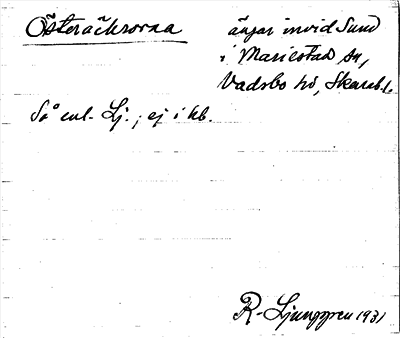 Österåkrorna
ängar invid Sund
i Mariestad sn,
Vadsbo hd, Skarab. l.
Så enl. Lj.; ej i kb.
R. Ljunggren 1931